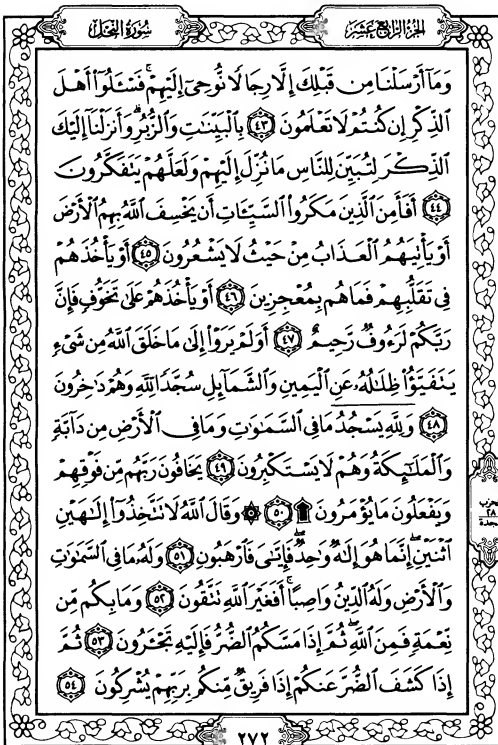 سُورَةُ النَّحْلِ
الجُزْءُ الرَّابِعُ عَشَرَ
وَمَآ أَرْسَلْنَا مِن قَبْلِكَ إِلَّا رِجَالًا نُّوحِىٓ إِلَيْهِمْ ۚ فَسْـَٔلُوٓا۟ أَهْلَ
ٱلذِّكْرِ إِن كُنتُمْ لَا تَعْلَمُونَ ٤٣ بِٱلْبَيِّنَـٰتِ وَٱلزُّبُرِ ۗ وَأَنزَلْنَآ إِلَيْكَ
ٱلذِّكْرَ لِتُبَيِّنَ لِلنَّاسِ مَا نُزِّلَ إِلَيْهِمْ وَلَعَلَّهُمْ يَتَفَكَّرُونَ
٤٤ أَفَأَمِنَ ٱلَّذِينَ مَكَرُوا۟ ٱلسَّيِّـَٔاتِ أَن يَخْسِفَ ٱللَّهُ بِهِمُ ٱلْأَرْضَ
أَوْ يَأْتِيَهُمُ ٱلْعَذَابُ مِنْ حَيْثُ لَا يَشْعُرُونَ ٤٥ أَوْ يَأْخُذَهُمْ
فِى تَقَلُّبِهِمْ فَمَا هُم بِمُعْجِزِينَ ٤٦ أَوْ يَأْخُذَهُمْ عَلَىٰ تَخَوُّفٍ فَإِنَّ
رَبَّكُمْ لَرَءُوفٌ رَّحِيمٌ ٤٧ أَوَلَمْ يَرَوْا۟ إِلَىٰ مَا خَلَقَ ٱللَّهُ مِن شَىْءٍ
يَتَفَيَّؤُا۟ ظِلَـٰلُهُۥ عَنِ ٱلْيَمِينِ وَٱلشَّمَآئِلِ سُجَّدًا لِّلَّهِ وَهُمْ دَٰخِرُونَ
٤٨ وَلِلَّهِ يَسْجُدُ مَا فِى ٱلسَّمَـٰوَٰتِ وَمَا فِى ٱلْأَرْضِ مِن دَآبَّةٍ
وَٱلْمَلَـٰٓئِكَةُ وَهُمْ لَا يَسْتَكْبِرُونَ ٤٩ يَخَافُونَ رَبَّهُم مِّن فَوْقِهِمْ
وَيَفْعَلُونَ مَا يُؤْمَرُونَ ۩ ٥٠ ۞ وَقَالَ ٱللَّهُ لَا تَتَّخِذُوٓا۟ إِلَـٰهَيْنِ
ٱثْنَيْنِ ۖ إِنَّمَا هُوَ إِلَـٰهٌ وَٰحِدٌ ۖ فَإِيَّـٰىَ فَٱرْهَبُونِ ٥١ وَلَهُۥ مَا فِى ٱلسَّمَـٰوَٰتِ
وَٱلْأَرْضِ وَلَهُ ٱلدِّينُ وَاصِبًا ۚ أَفَغَيْرَ ٱللَّهِ تَتَّقُونَ ٥٢ وَمَا بِكُم مِّن
نِّعْمَةٍ فَمِنَ ٱللَّهِ ۖ ثُمَّ إِذَا مَسَّكُمُ ٱلضُّرُّ فَإِلَيْهِ تَجْـَٔرُونَ ٥٣ ثُمَّ
إِذَا كَشَفَ ٱلضُّرَّ عَنكُمْ إِذَا فَرِيقٌ مِّنكُم بِرَبِّهِمْ يُشْرِكُونَ ٥٤
حزب
٢٨
سجدة
٢٧٢